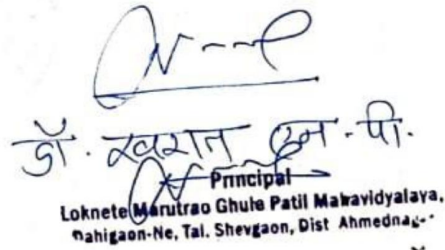 डॉ. खरात एन. पी.
Principal
Loknete Marutrao Ghule Patil Mahavidyalaya,
Dahigaon-Ne, Tal. Shevgaon, Dist Ahmednag..